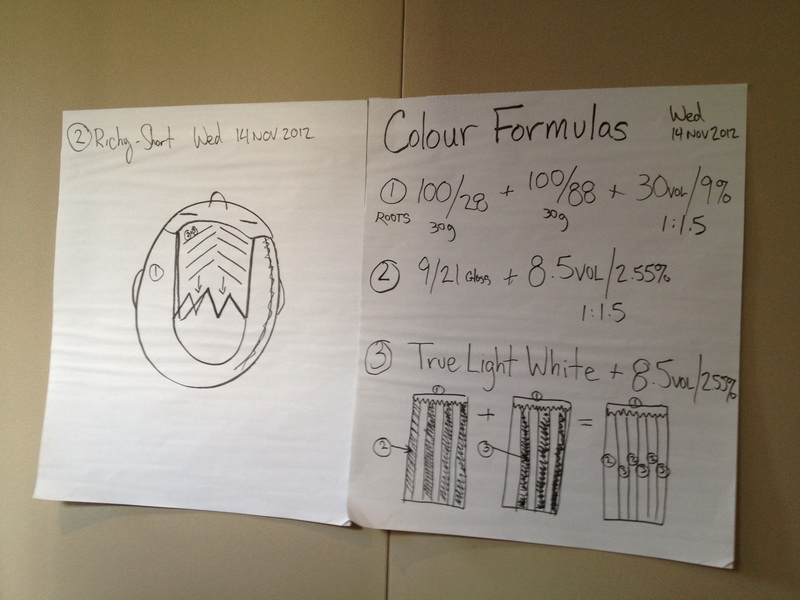 ② Richy-Short Wed 14 NOV 2012
③②
①
Colour Formulas
Wed
14 NOV 2012
① 100/28 + 100/88 + 30VOL/9%
ROOTS 30g 30g 1:1.5
② 9/21 Gloss + 8.5VOL/2.55%
1:1.5
③ True Light White + 8.5VOL/2.55%
① + ① = ①
② ③ ② ③ ② ③ ② ③